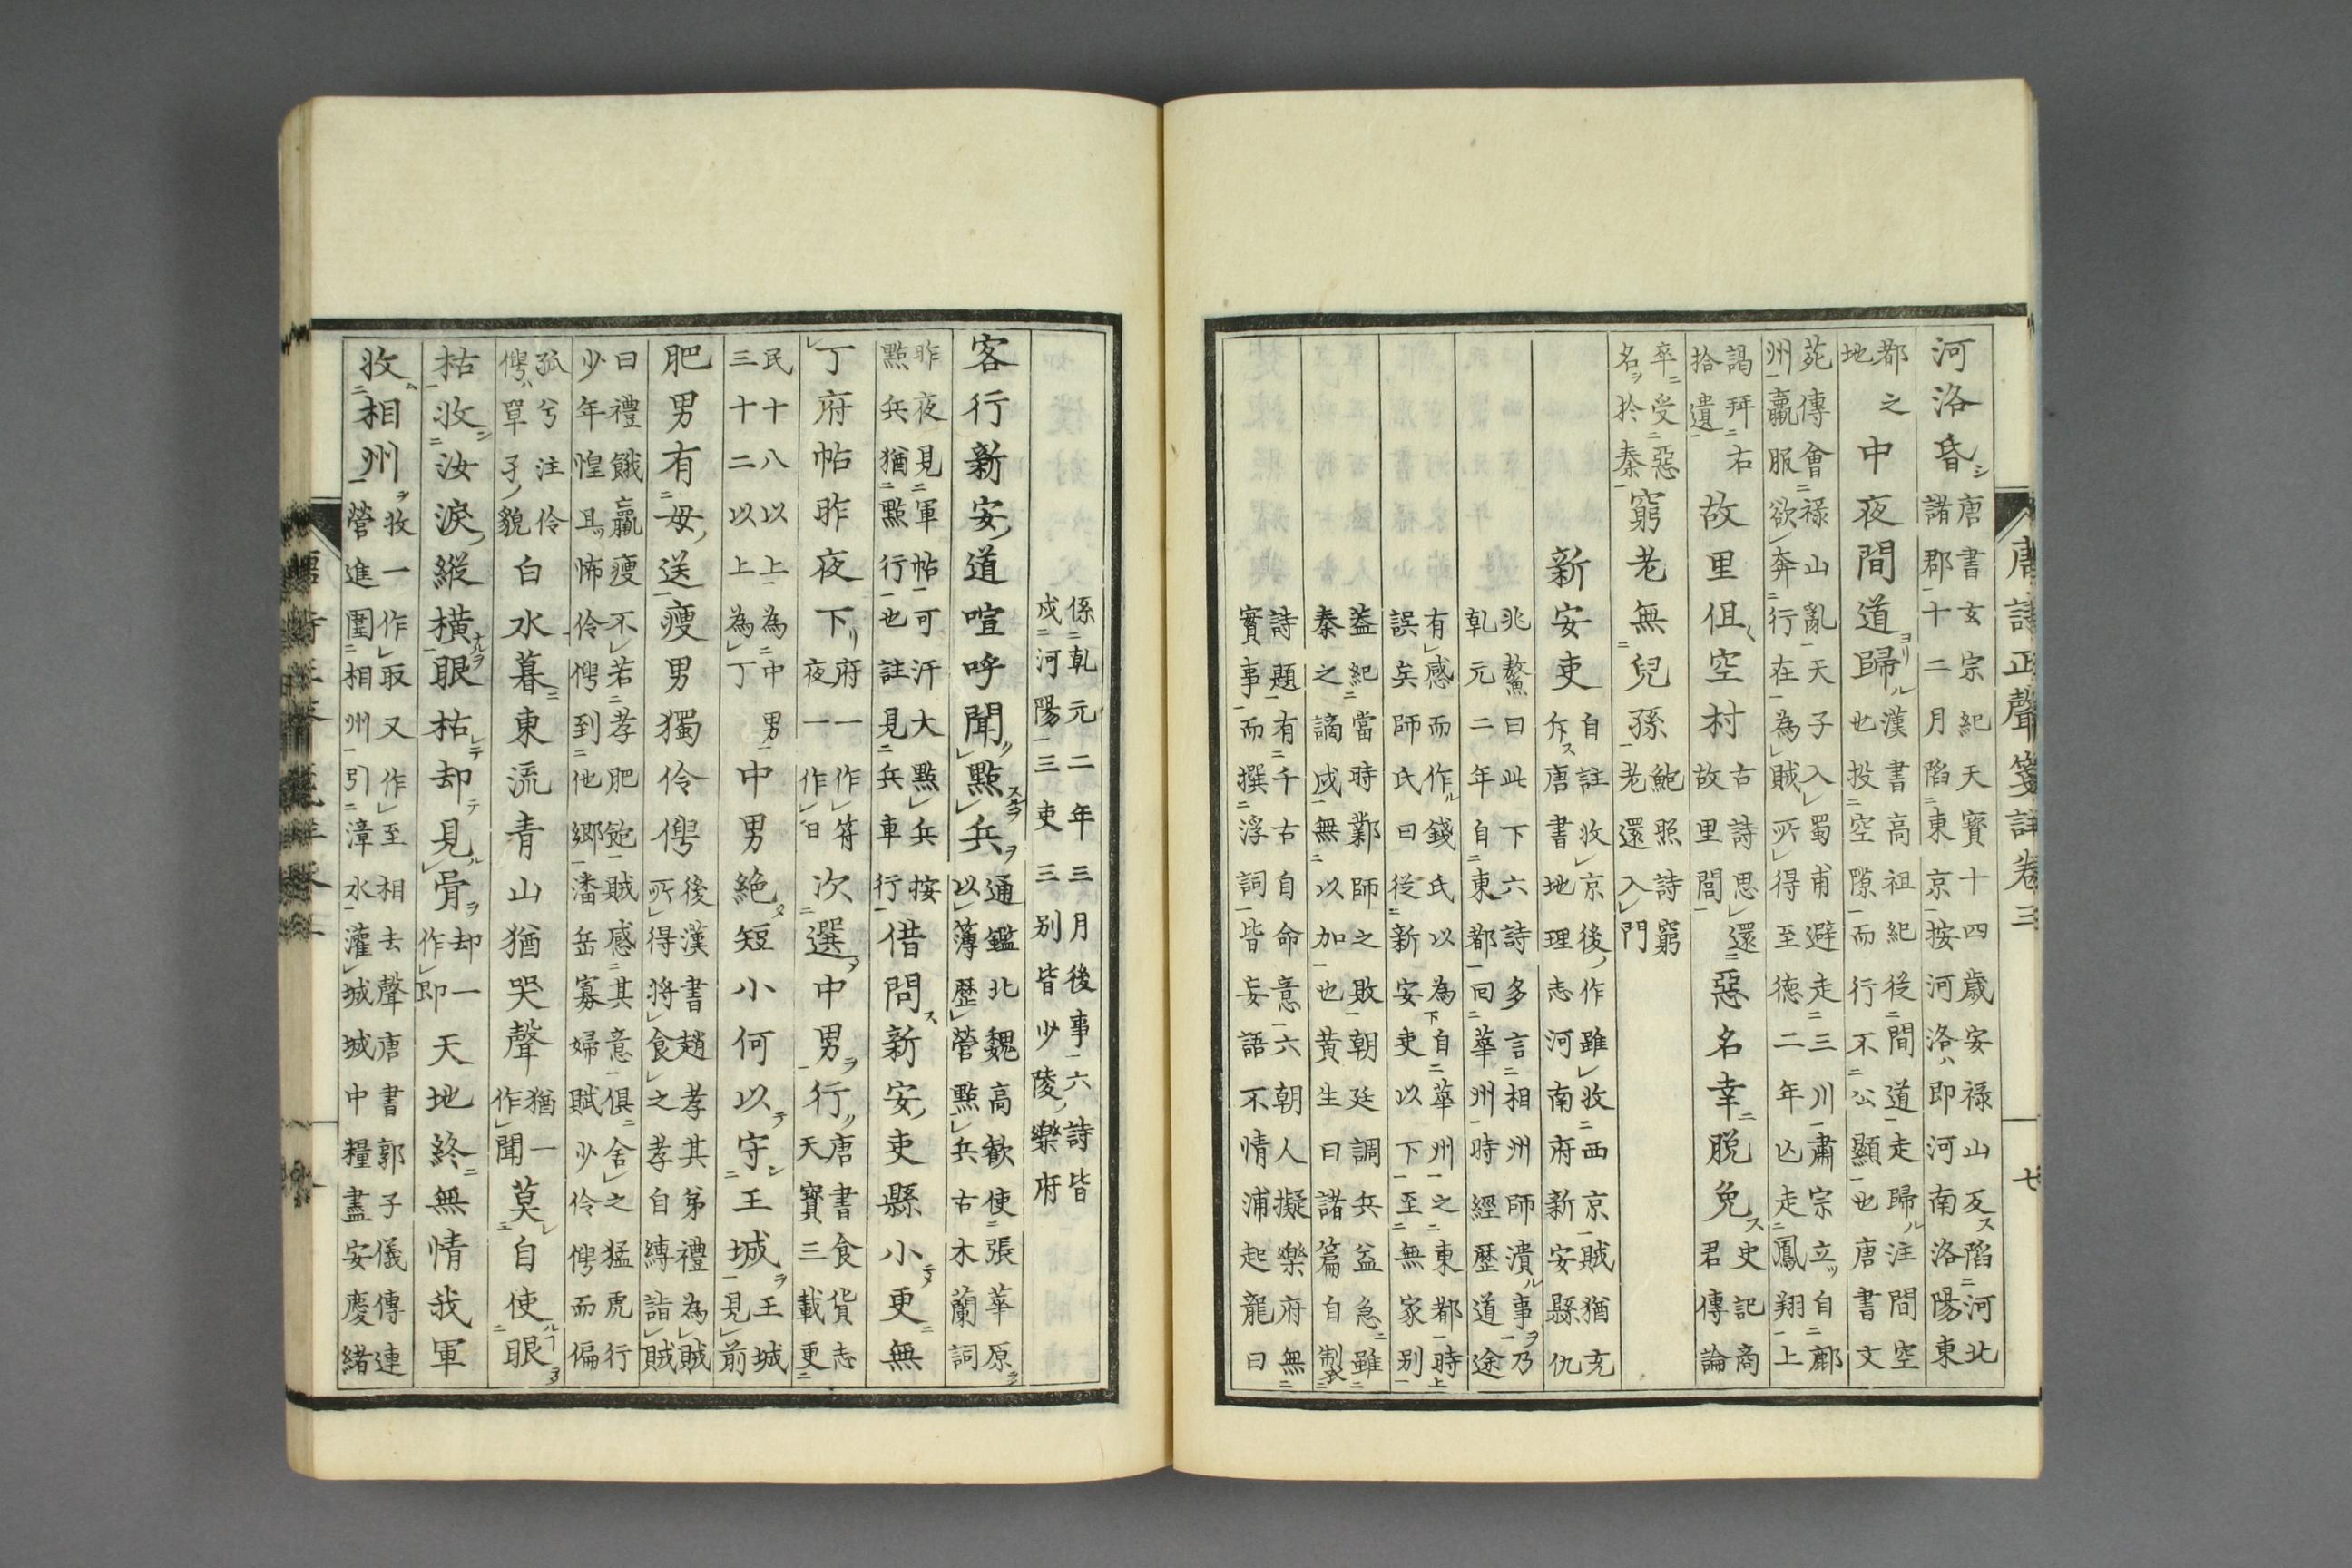 唐詩正聲箋註卷三　七
河洛昏唐書玄宗紀天寶十四歳安禄山反陷河北諸郡十二月陷東京按河洛即河南洛陽東
都之地中夜間道歸漢書高祖紀從間道走歸注間空也投空隙而行不公顯也唐書文
苑傳會禄山亂天子入蜀甫避走三川肅宗立自鄜州羸服欲奔行在為賊所得至德二年亾走鳳翔上
謁拜右拾遺故里但空村古詩思還故里閭惡名幸脫免史記商君傳論
卒受惡名於秦窮老無兒孫鮑照詩窮老還入門
新安吏自註收京後作雖收西京賊猶充斥唐書地理志河南府新安縣仇
兆鰲曰此下六詩多言相州師潰事乃乾元二年自東都回華州時經歷道途
有感而作錢氏以為自華州之東都時誤矣師氏曰從新安吏以下至無家別
蓋紀當時鄴師之敗朝廷調兵益急雖秦之謫戍無以加也黄生曰諸篇自製
詩題有千古自命意六朝人擬樂府無實事而撰浮詞皆妄語不情浦起龍曰
係乾元二年三月後事六詩皆戍河陽三吏三別皆少陵樂府
客行新安道喧呼聞點兵通鑑北魏高歡使張華原以薄歷營點兵古木蘭詞
昨夜見軍帖可汗大點兵按點兵猶點行也註見兵車行借問新安吏縣小更無
丁府帖昨夜下府一作符夜一作日次選中男行唐書食貨志天寶三載更
民十八以上為中男三十二以上為丁中男絶短小何以守王城王城見前
肥男有母送瘦男獨伶俜後漢書趙孝其弟禮為賊所得將食之孝自縛詣賊
曰禮餓羸瘦不若孝肥飽賊感其意俱舍之猛虎行少年惶且怖伶俜到他郷潘岳寡婦賦少伶俜而偏
孤兮注伶俜單孑貌白水暮東流青山猶哭聲猶一作聞莫自使眼
枯收汝淚縱橫眼枯却見骨却一作即天地終無情我軍
收相州收一作取又作至相去聲唐書郭子儀傳連營進圍相州引漳水灌城城中糧盡安慶緒